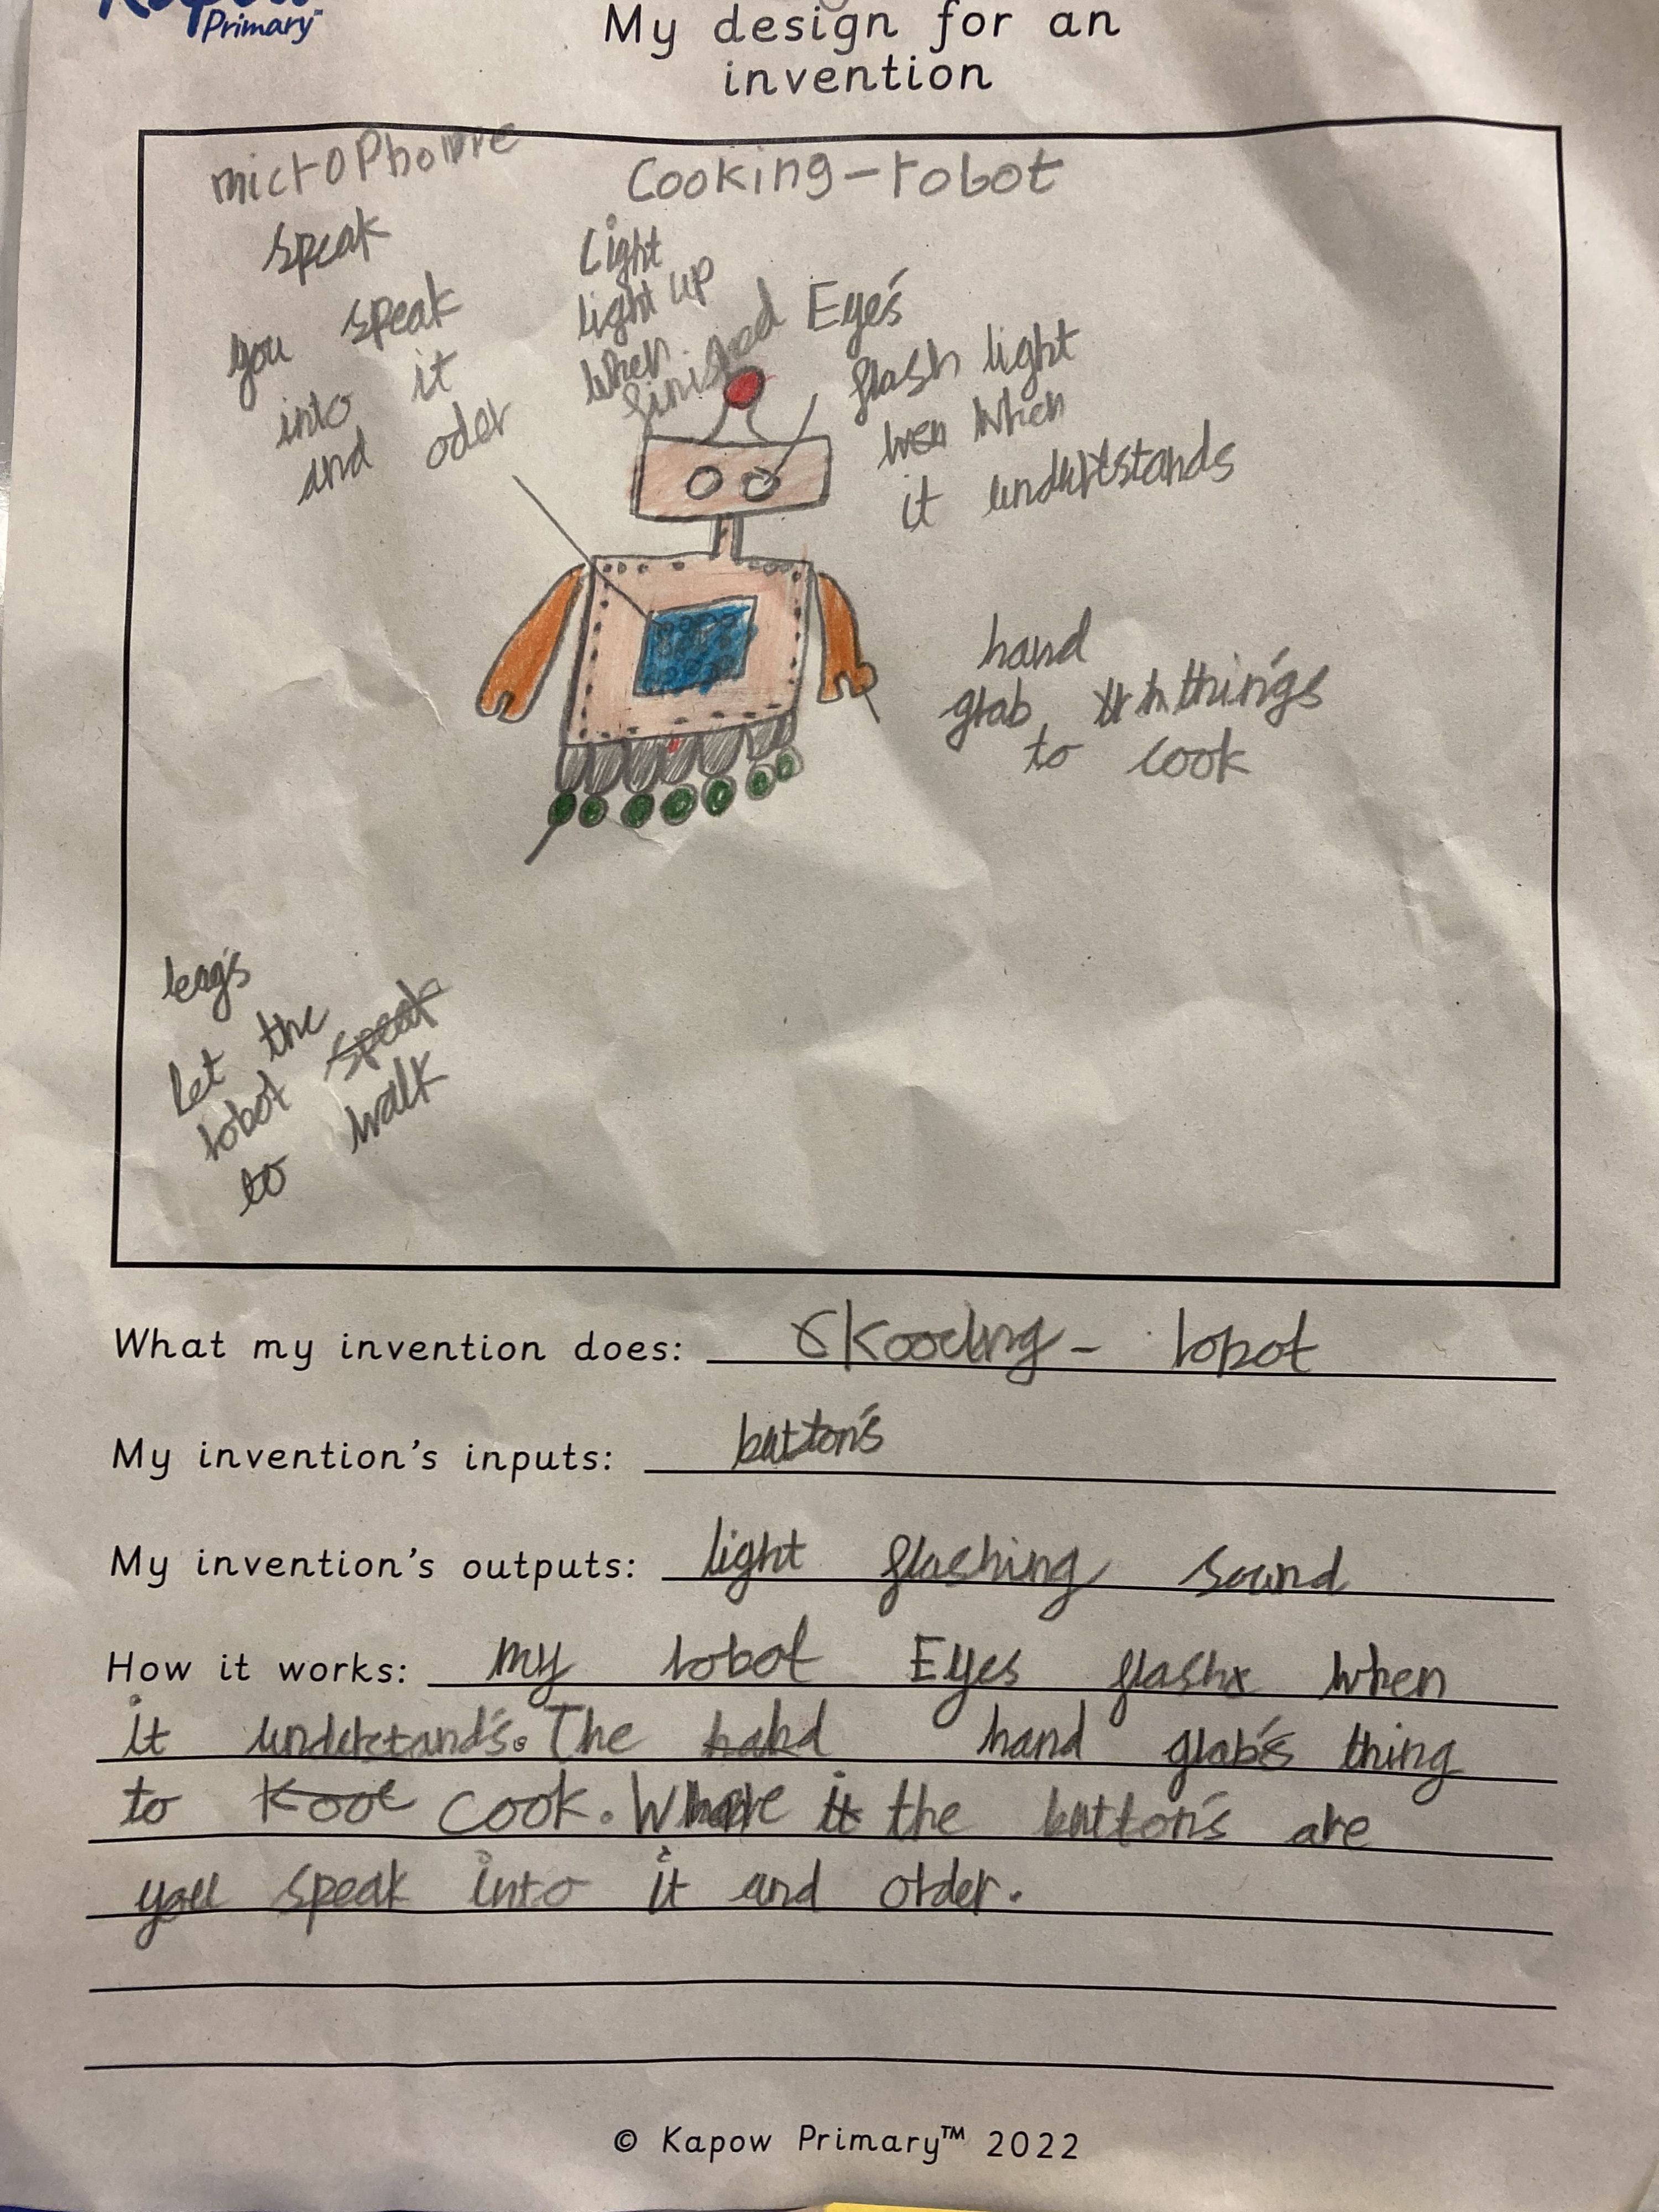 Kapow
Primary
My design for an
invention
microphone
speak
you speak
into it
and oder
Cooking-robot
Light
light up
when
finished
Eye's
flash light
when
it understands
hand
grab things
to cook
leags
Let the
robot speak
to walk
What my invention does: - robot
My invention's inputs: button's
My invention's outputs: light flashing sound
How it works: my robot Eyes flash when
it understand's. The hand hand grab's thing
to Kooc cook. Where the button's are
you speak into it and order.
© Kapow Primary™ 2022